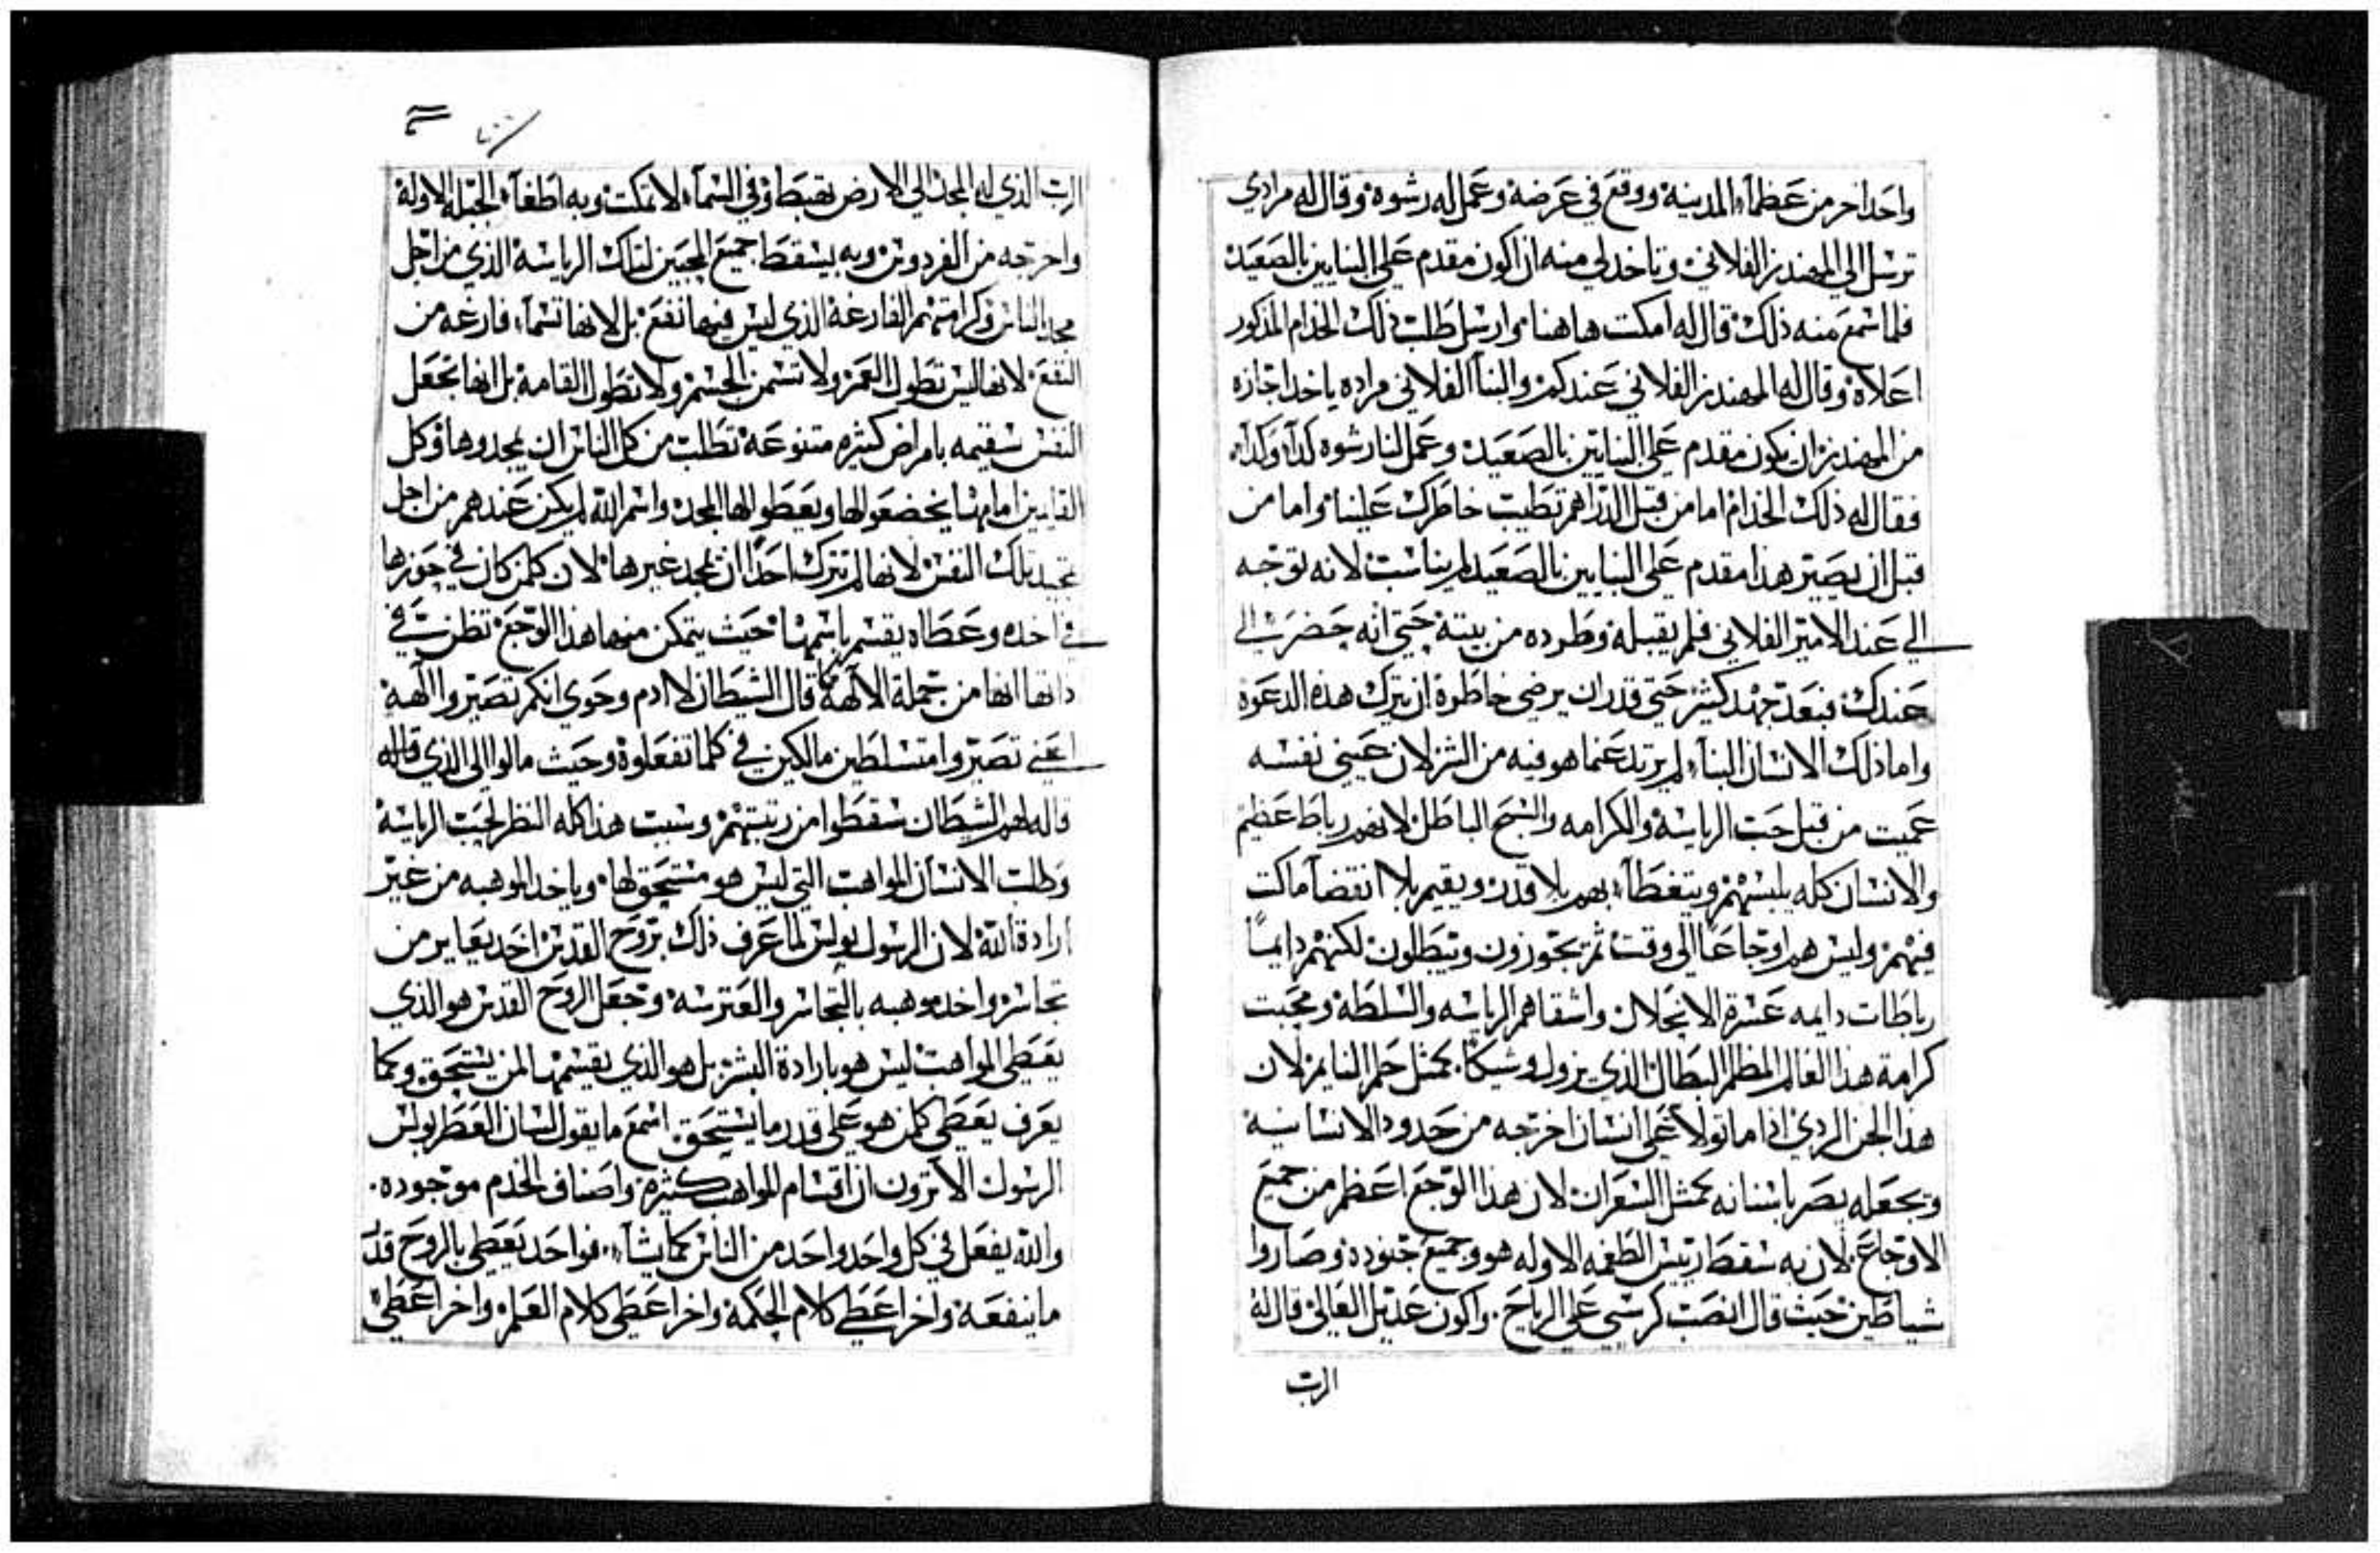 واحد اخر من عظماء المدينة ووقع في عرضه وعمل له رشوه وقال له مرادي
ترسل الي المهندز الفلاني وتاخد لي منه ان اكون مقدم علي البنايين بالصعيد
فلما سمع منه ذلك قال له امكت هاهنا وارسل طلب ذلك الخدام المذكور
اعلاه وقال له المهندز الفلاني عندكم والبنا الفلاني مراده ياخد اجازه
من المهندز ان يكون مقدم علي البنايين بالصعيد وعمل لنا رشوه كدا وكدا
فقال له ذلك الخدام اما من قبل الدراهم تطيب خاطرك علينا واما من
قبل ان يصير هذا مقدم علي البنايين بالصعيد لم يناسب لانه توجه
الي عند الامير الفلاني فلم يقبله وطرده من بيته حتي انه حضر الي
عندك فبعد جهد كثير حتي قدر ان يرضي خاطره ان يترك هذه الدعوه
واما ذلك الانسان البنا لم يرتد عما هو فيه من الشر لان عيني نفسه
عميت من قبل حب الرياسة والكرامه والسبح الباطل لانهم رباط عظيم
والانسان كله يلبسهم ويتغطا بهم بلا قدر ويقيم بلا انقضا ماكت
فيهم وليس هم اوجاعا الي وقت ثم يجوزون ويبطلون لكنهم دايما
رباطات دايمه عسرة الانحلال واشقاهم الرياسه والسلطة ومحبت
كرامة هذا العالم المظلم البطال الذي يزول وشيكا كمثل حلم النايم لان
هذا الجن الردي اذا ما تولا علي انسان اخرجه من حدود الانسانيه
ويجعله يصر باسنانه كمثل السعران لان هذا الوجع اعظم من جميع
الاوجاع لان به سقط رييس الطغمه الاوله هو وجميع جنوده وصاروا
شياطين حيث قال انصب كرسي علي الرياح واكون عديل العالي قال له
الرب
الرب الذي له المجد الي الارض تهبط وفي السما لا تمكت وبه اطغا الجبله الاولة
واخرجه من الفردوس وبه يسقط جميع المحبين لتلك الرياسه الذي من اجل
مجد الناس وكرامتهم الفارغة الذي ليس فيها نفع بل لانها تسما فارغه من
النفع لانها ليس تطول العمر ولا تسمن الجسم ولا تطول القامه بل انها تجعل
النفس سقيمه بامراض كثيره متنوعه تطلب من كل الناس ان يمجدوها وكل
القايمين امامها يخضعوا لها ويعطوا لها المجد واسم الله لم يكن عندهم من اجل
تمجيد تلك النفس لانها لم تترك احدا ان يمجد غيرها لان كلمن كان في حوزها
في اخده وعطاه يقسم باسمها حيث يتمكن منها هذا الوجع تظن في
داتها انها من جملة الالهة كما قال الشيطان لادم وحوي انكم تصيروا الهة
اعني تصيروا متسلطين مالكين في كلما تفعلوة وحيث مالوا الي الذي قاله
قاله لهم الشيطان سقطوا من رتبتهم وسبب هذا كله النظر لحب الرياسه
وطلب الانسان المواهب التي ليس هو مستحق لها وياخد الموهبه من غير
ارادة الله لان الرسول بولس لما عرف ذلك بروح القدس اخد يعاير من
تجاسر واخد موهبه بالتجاسر والعترسه وجعل الروح القدس هو الذي
يعطي المواهب ليس هو بارادة البشر بل هو الذي يقسمها لمن يستحق وكما
يعرف يعطي كلمن هو علي قدر ما يستحق اسمع ما يقول لسان العطر بولس
الرسول الا ترون ان اقسام المواهب كثيرة واصناف الخدم موجوده
والله يفعل في كل واحد واحد من الناس كما يشا فواحد يعطي بالروح قدر
ما ينفعه واخر اعطي كلام الحكمة واخر اعطي كلام العلم واخر اعطي